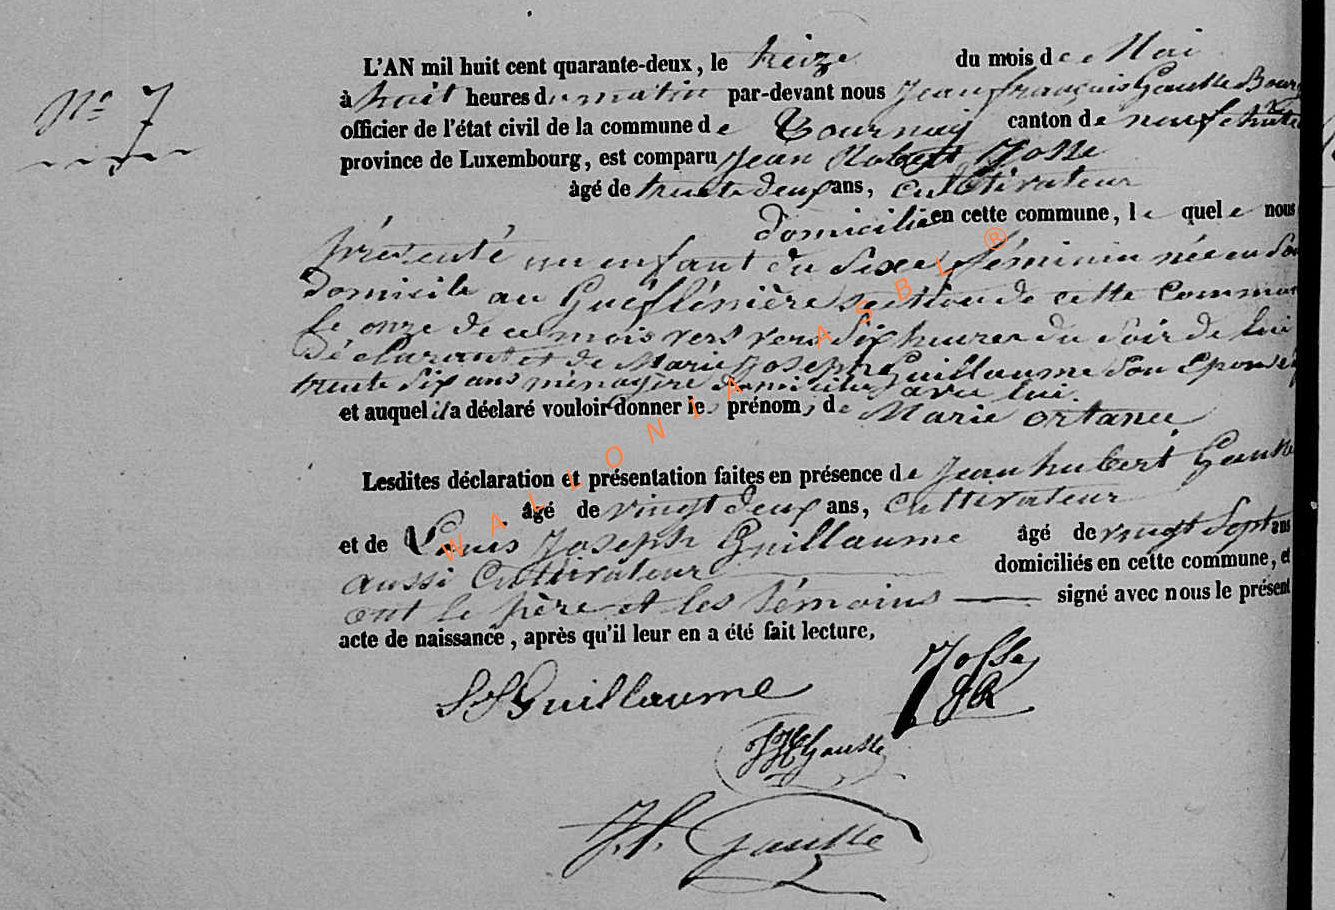 N° 7
L'AN mil huit cent quarante-deux, le treize du mois de Mai
à huit heures du matin par-devant nous Jean françois Gausse Bourg
officier de l'état civil de la commune de Tournay canton de neufchâte
province de Luxembourg, est comparu Jean Robert Josse
âgé de trente deux ans, Cultivateur
domicilié en cette commune, le quel e nous
présenté un enfant du Sexe féminin née en Son
domicile au section de cette Commune
le onze de ce mois vers vers Six heures du Soir de lui
déclarant et de Marie Joseph Guillaume Son Epouse
trente Six ans ménagère domiciliée avec lui.
et auquel il a déclaré vouloir donner les prénoms de Marie ortance
Lesdites déclaration et présentation faites en présence de Jean hubert Gausse
âgé de vingt deux ans, Cultivateur
et de Louis Joseph Guillaume âgé de vingt Sept ans
aussi Cultivateur domiciliés en cette commune, et
ont le père et les témoins signé avec nous le présent
acte de naissance, après qu'il leur en a été fait lecture,
Guillaume Josse
JR
Gausse
J.f. Gausse
WALLONIA ASBL ®